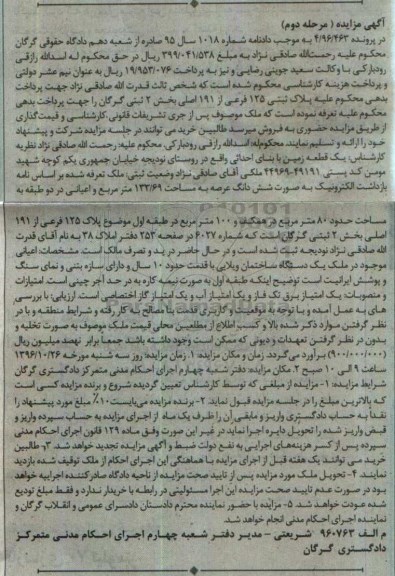 آگهی مزایده ( مرحله دوم)
در پرونده ۴/۹۶/۴۶۳ به موجب دادنامه شماره ۱۰۱۸ سال ۹۵ صادره از شعبه دهم دادگاه حقوقی گرگان
محکوم علیه رحمت‌الله صادقی نـژاد به مبلـغ ۳۹۹/۰۴۱/۵۳۸ ریـال در حق محکوم لـه اسـدالله رازقی
رودبارکی بـا وکالت سعید جوینی رضایی و نیز به پرداخت ۱۹/۹۵۳/۰۷۶ ریال به عنوان نیم عشر دولتی
و پرداخـت هزینه کارشناسی محکوم شده است که شخص ثالث قدرت الله صادقی نژاد جهت پرداخت
بدهی محکوم علیه پـلاک ثبتی ۱۲۵ فرعی از ۱۹۱ اصلی بخش ۲ ثبتی گـرگان را جهت پرداخت بدهی
محکوم علیه تعرفه نموده است که ملک موصـوف پس از جری تشریفات قانونی، کارشناسی و قیمت‌گذاری
از طریق مزایده حضوری به فروش میرسد طالبین خرید می توانند در جلسه مزایده شرکت و پیشنهاد
خود را ارائه و تسلیم نمایند. محکوم‌له: اسدالله رازقی رودبارکی، محکوم علیه: رحمت الله صادقی نژاد نظریه
کارشناس: یک قطعه زمین با بنای احداثی واقع در روستای نودیجه خیابان جمهوری یکم کوچه شهید
مومن کد پستی ۴۹۱۹۱-۴۴۹۶۹ ملکی آقای صادقی نـژاد وضعیت ثبتی: ملک تعرفه شده بر اساس نامه
بازداشت الکترونیک به صورت شش دانگ عرصه به مساحت ۱۳۳/۶۹ متر مربع و اعیانی در دو طبقه به
مساحت حدود ۸۰ متر مربع در همکف و ۱۰۰ متر مربع در طبقه اول موضوع پلاک ۱۲۵ فرعی از ۱۹۱
اصلی بخش ۲ ثبتی گرگان است که شماره ۶۰۲۷ در صفحه ۲۵۳ دفتر املاک ۳۸ به نام آقای قدرت
الله صادقی نژاد نودیجه ثبت شده است و در حال حاضر در ید و تصرف مالک است. مشخصات: اعیانی
موجود در ملک یک دستگاه ساختمان ویلایی با قدمت حدود ۱۰ سال و دارای سازه بتنی و نمای سنگ
و پوشش ایرانیت است توضیح اینکه طبقه اول به صورت نیمه کاره به در حد آجر چینی است. امتیازات
و منصوبات: یک امتیاز برق تک فاز و یک امتیاز آب و یک امتیاز گاز اختصاصی است. ارزیابی: با بررسی
های به عمل آمده و با توجه به موقعیت و کاربری قدمت بنا مصالح به کار رفته و شرایط منطقه و با در
نظر گرفتن موارد ذکر شده بالا و کسب اطلاع از مطلعین محلی قیمت ملک موصوف به صورت تخلیه و
بدون در نظر گرفتن تعهدات و دیونی که ممکن است وجود داشته باشد جمعا برابر نهصد میلیون ریال
(۹۰۰/۰۰۰/۰۰۰) برآورد می‌گردد. زمان و مکان مزایده: ۱. زمان مزایده: روز سه شنبه مورخه ۱۳۹۶/۱۰/۲۶
ساعت ۹ الی ۱۰ صبح ۲. مکان مزایده: دفتر شعبه چهارم اجرای احکام مدنی متمرکز دادگستری گرگان
شرایط مزایده: ۱- مزایده از مبلغی که توسط کارشناس تعیین گردیده شروع و برنده مزایده کسی است
که بالاترین مبلغ را در جلسه مزایده قبول نماید. ۲- برنده مزایده می‌بایست ۱۰٪ مبلغ مورد پیشنهاد را
نقدا به حساب دادگستری واریز و مابقی آن را ظرف یک ماه از اجرای مزایده به حساب سپرده واریز و
قبض واریز شده را تحویل دایره اجرا نماید در غیر این صورت وفق ماده ۱۲۹ قانون اجرای احکام مدنی
سپرده پس از کسر هزینه‌های اجرایی به نفع دولت ضبط و آگهی مزایده تجدید خواهد شد. ۳- طالبین
خرید می توانند یک هفته قبل از اجرای مزایده با هماهنگی این اجرای احکام از ملک توقیف شده بازدید
نمایند. ۴- تحویل ملک مورد مزایده پس از تایید صحت مزایده از ناحیه دادگاه صادرکننده اجراییه خواهد
بود در صورت عدم تایید صحت مزایده این اجرا مسئولیتی در رابطه با خریدار ندارد و فقط مبلغ تودیع
شده عودت خواهد شد. ۵- مزایده با حضور نماینده محترم دادستان دادسرای عمومی و انقلاب گرگان و
نماینده اجرای احکام مدنی انجام خواهد شد.
م الف ۹۶۰۷۶۳ شریعتی - مدیر دفتر شعبه چهارم اجرای احکام مدنـی متمرکـز
دادگستـری گـرگان